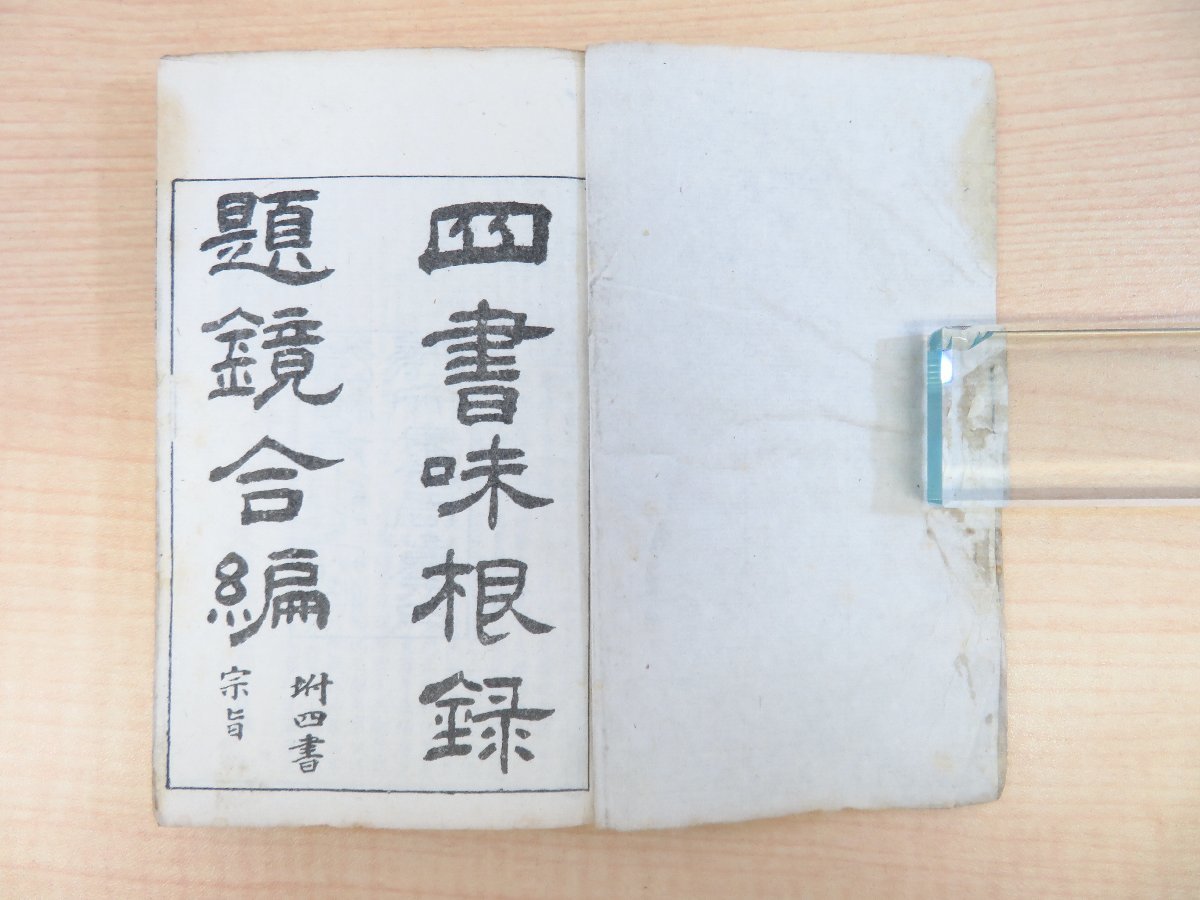 四書味根録
題鏡合編
坿四書
宗旨